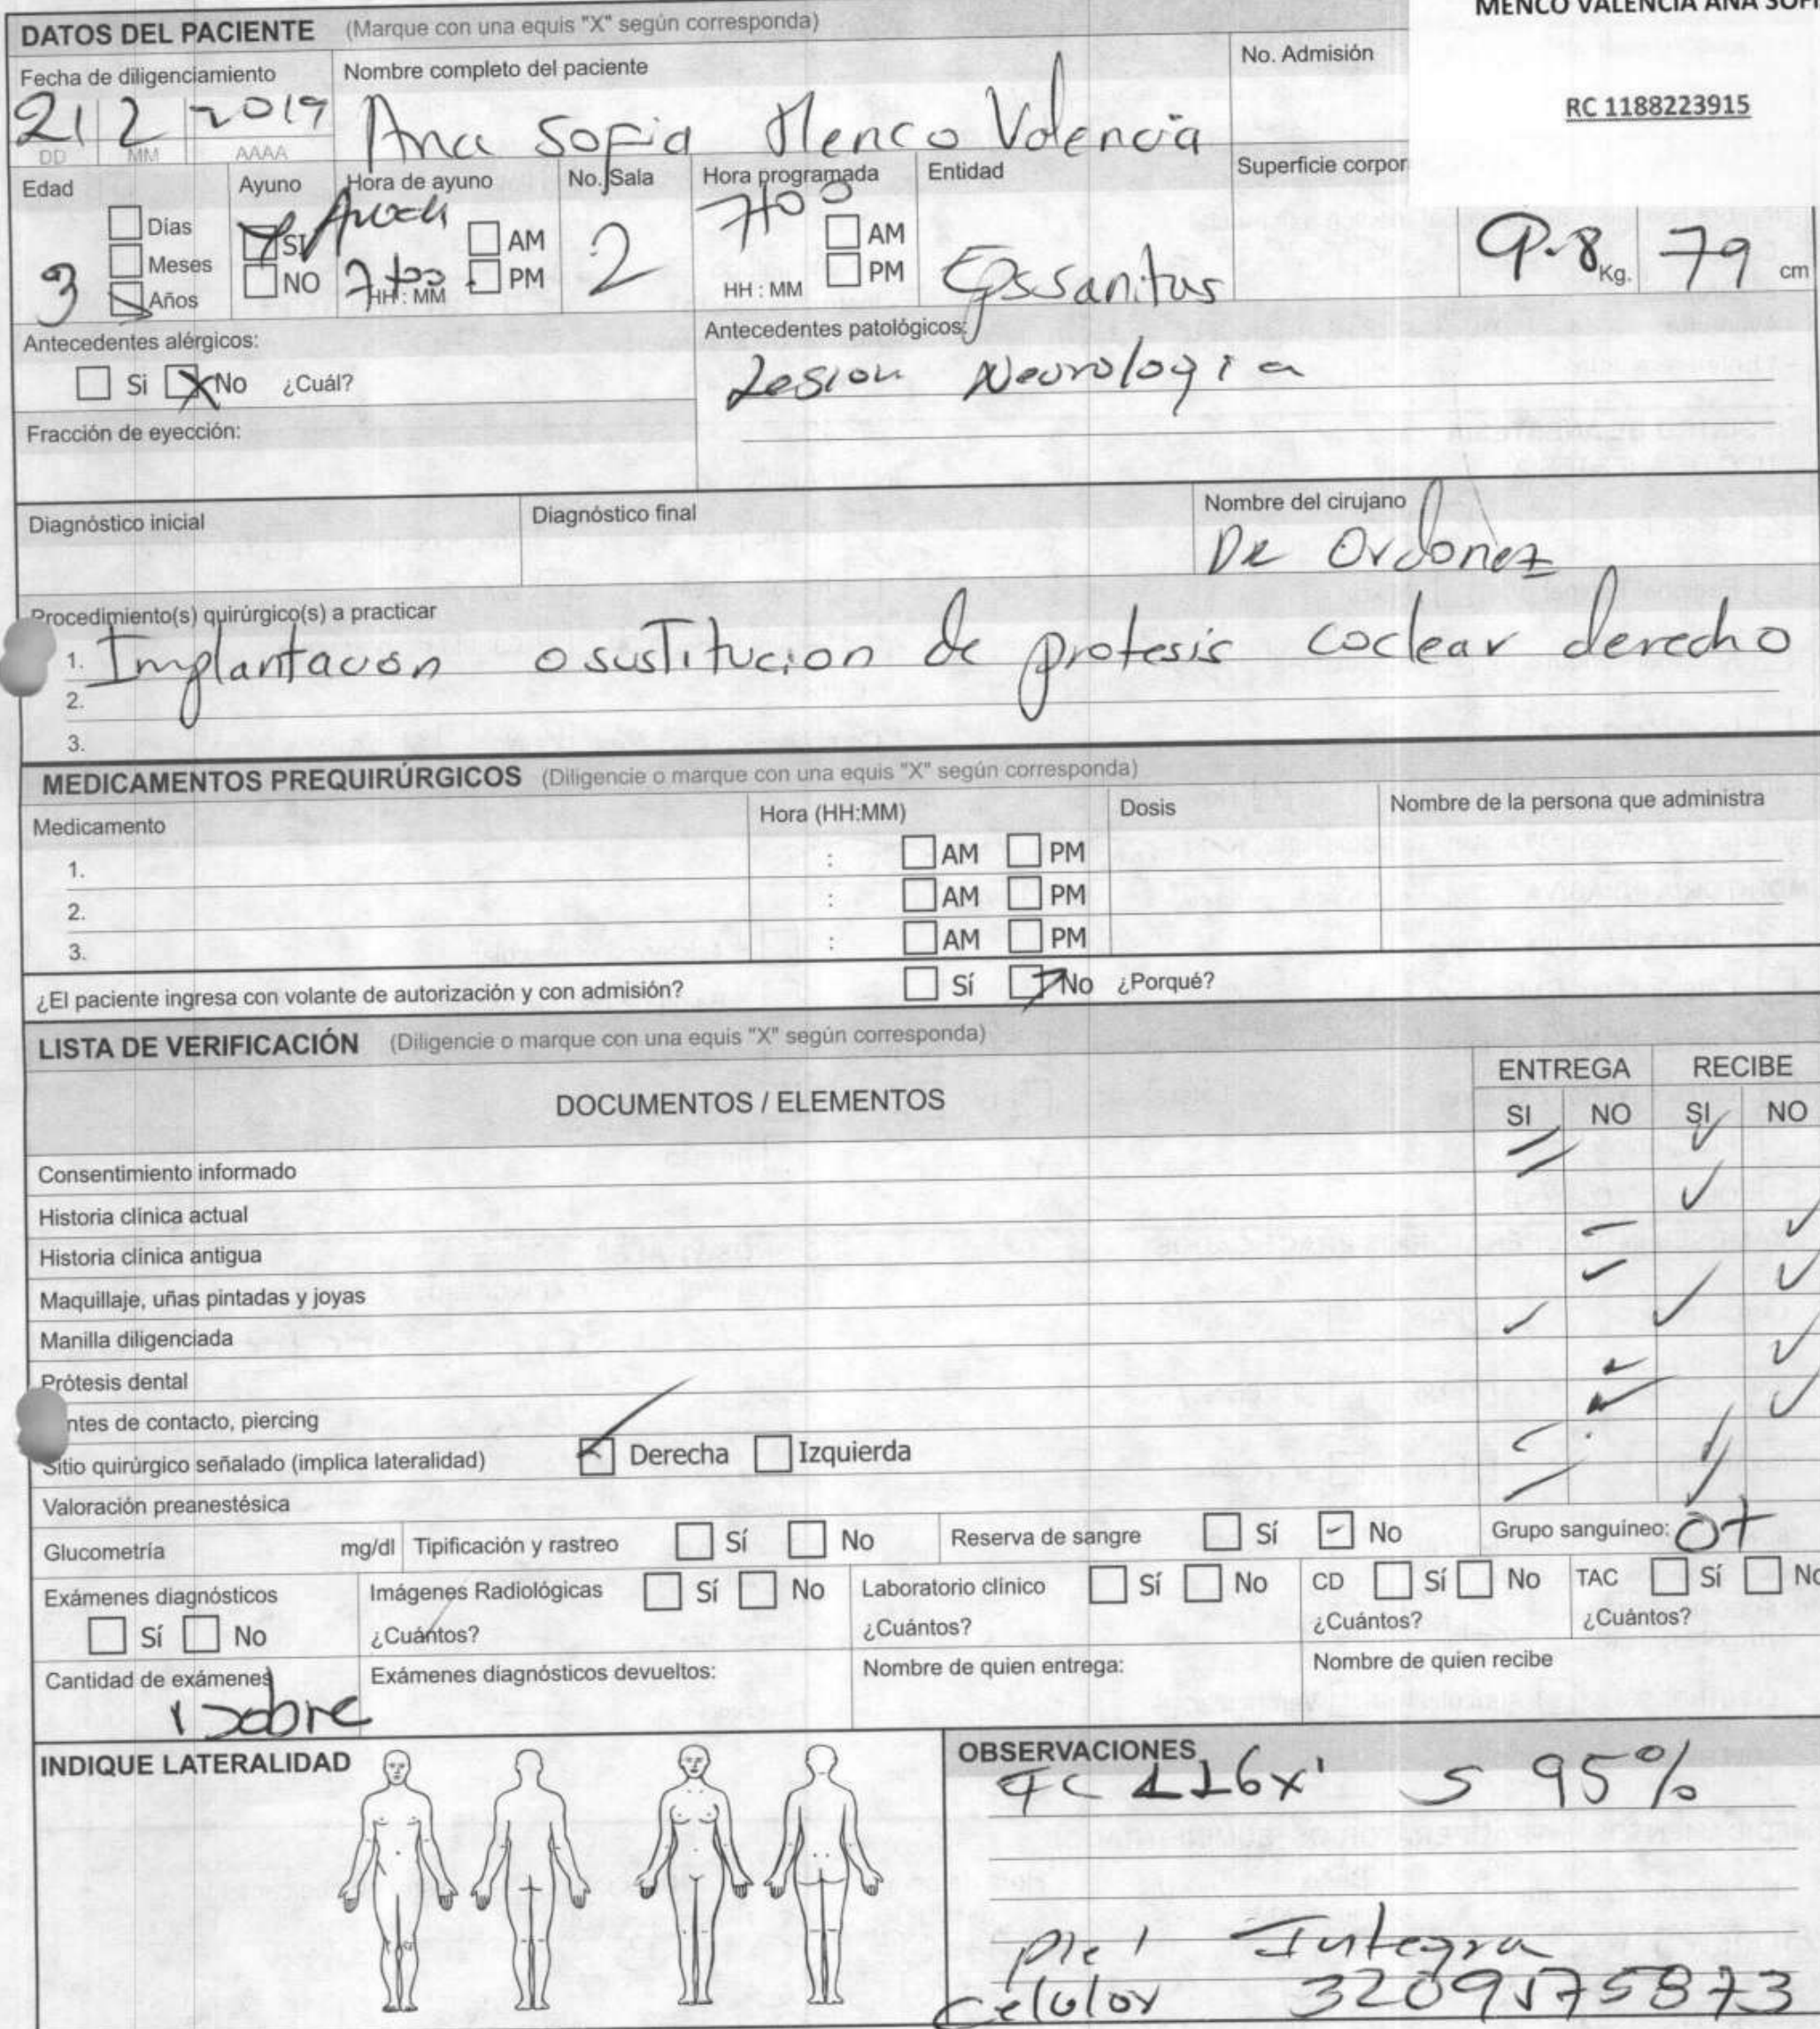 MENCO VALENCIA ANA SOFI
RC 1188223915
DATOS DEL PACIENTE (Marque con una equis "X" según corresponda)
Fecha de diligenciamiento Nombre completo del paciente No. Admisión
21 2 2019 Ana Sofia Menco Valencia
DD MM AAAA
Edad Ayuno Hora de ayuno No. Sala Hora programada Entidad Superficie corpor
3 Días Meses Años
SI NO
7+00 HH : MM AM PM
2
7+00 HH : MM AM PM
Epssanitas
9.8 Kg. 79 cm
Antecedentes alérgicos: Antecedentes patológicos:
Si No ¿Cuál? Lesion Neurologia
Fracción de eyección:
Diagnóstico inicial Diagnóstico final Nombre del cirujano
DR Ordonez
Procedimiento(s) quirúrgico(s) a practicar
1. Implantacion o sustitucion de protesis coclear derecho
2.
3.
MEDICAMENTOS PREQUIRÚRGICOS (Diligencie o marque con una equis "X" según corresponda)
Medicamento Hora (HH:MM) Dosis Nombre de la persona que administra
1. : AM PM
2. : AM PM
3. : AM PM
¿El paciente ingresa con volante de autorización y con admisión? Sí No ¿Porqué?
LISTA DE VERIFICACIÓN (Diligencie o marque con una equis "X" según corresponda)
DOCUMENTOS / ELEMENTOS ENTREGA RECIBE
SI NO SI NO
Consentimiento informado
Historia clínica actual
Historia clínica antigua
Maquillaje, uñas pintadas y joyas
Manilla diligenciada
Prótesis dental
ntes de contacto, piercing
Sitio quirúrgico señalado (implica lateralidad) Derecha Izquierda
Valoración preanestésica
Glucometría mg/dl Tipificación y rastreo Sí No Reserva de sangre Sí No Grupo sanguíneo: O+
Exámenes diagnósticos Imágenes Radiológicas Sí No Laboratorio clínico Sí No CD Sí No TAC Sí No
Sí No ¿Cuántos? ¿Cuántos? ¿Cuántos? ¿Cuántos?
Cantidad de exámenes Exámenes diagnósticos devueltos: Nombre de quien entrega: Nombre de quien recibe
1 sobre
INDIQUE LATERALIDAD OBSERVACIONES
FC 116x' S 95%
piel Integra
Celular 3209575873